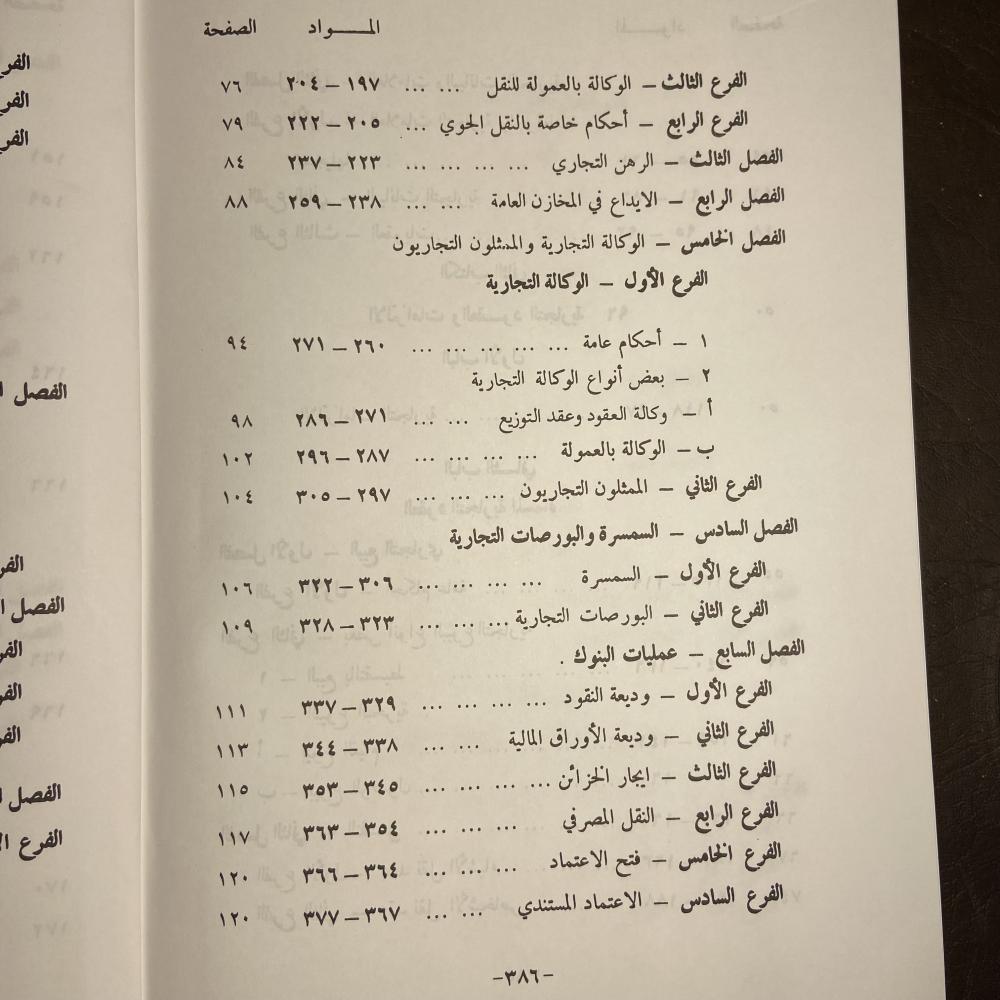 المـــواد الصفحة
الفرع الثالث – الوكالة بالعمولة للنقل ... ... ١٩٧ – ٢٠٤ ٧٦
الفرع الرابع – أحكام خاصة بالنقل الجوي ... ٢٠٥ – ٢٢٢ ٧٩
الفصل الثالث – الرهن التجاري ... ... ... ... ٢٢٣ – ٢٣٧ ٨٤
الفصل الرابع – الايداع في المخازن العامة ... ... ٢٣٨ – ٢٥٩ ٨٨
الفصل الخامس – الوكالة التجارية والممثلون التجاريون
الفرع الأول – الوكالة التجارية
١ – أحكام عامة ... ... ... ... ... ٢٦٠ – ٢٧١ ٩٤
٢ – بعض أنواع الوكالة التجارية
أ – وكالة العقود وعقد التوزيع ... ... ٢٧١ – ٢٨٦ ٩٨
ب – الوكالة بالعمولة ... ... ... ... ٢٨٧ – ٢٩٦ ١٠٢
الفرع الثاني – الممثلون التجاريون ... ... ... ٢٩٧ – ٣٠٥ ١٠٤
الفصل السادس – السمسرة والبورصات التجارية
الفرع الأول – السمسرة ... ... ... ... ٣٠٦ – ٣٢٢ ١٠٦
الفرع الثاني – البورصات التجارية ... ... ... ٣٢٣ – ٣٢٨ ١٠٩
الفصل السابع – عمليات البنوك .
الفرع الأول – وديعة النقود ... ... ... ... ٣٢٩ – ٣٣٧ ١١١
الفرع الثاني – وديعة الأوراق المالية ... ... ٣٣٨ – ٣٤٤ ١١٣
الفرع الثالث – ايجار الخزائن ... ... ... ... ٣٤٥ – ٣٥٣ ١١٥
الفرع الرابع – النقل المصرفي ... ... ... ٣٥٤ – ٣٦٣ ١١٧
الفرع الخامس – فتح الاعتماد ... ... ... ٣٦٤ – ٣٦٦ ١٢٠
الفرع السادس – الاعتماد المستندي ... ... ٣٦٧ – ٣٧٧ ١٢٠
–٣٨٦–
الفصل
الفصل
الفصل
الفرع